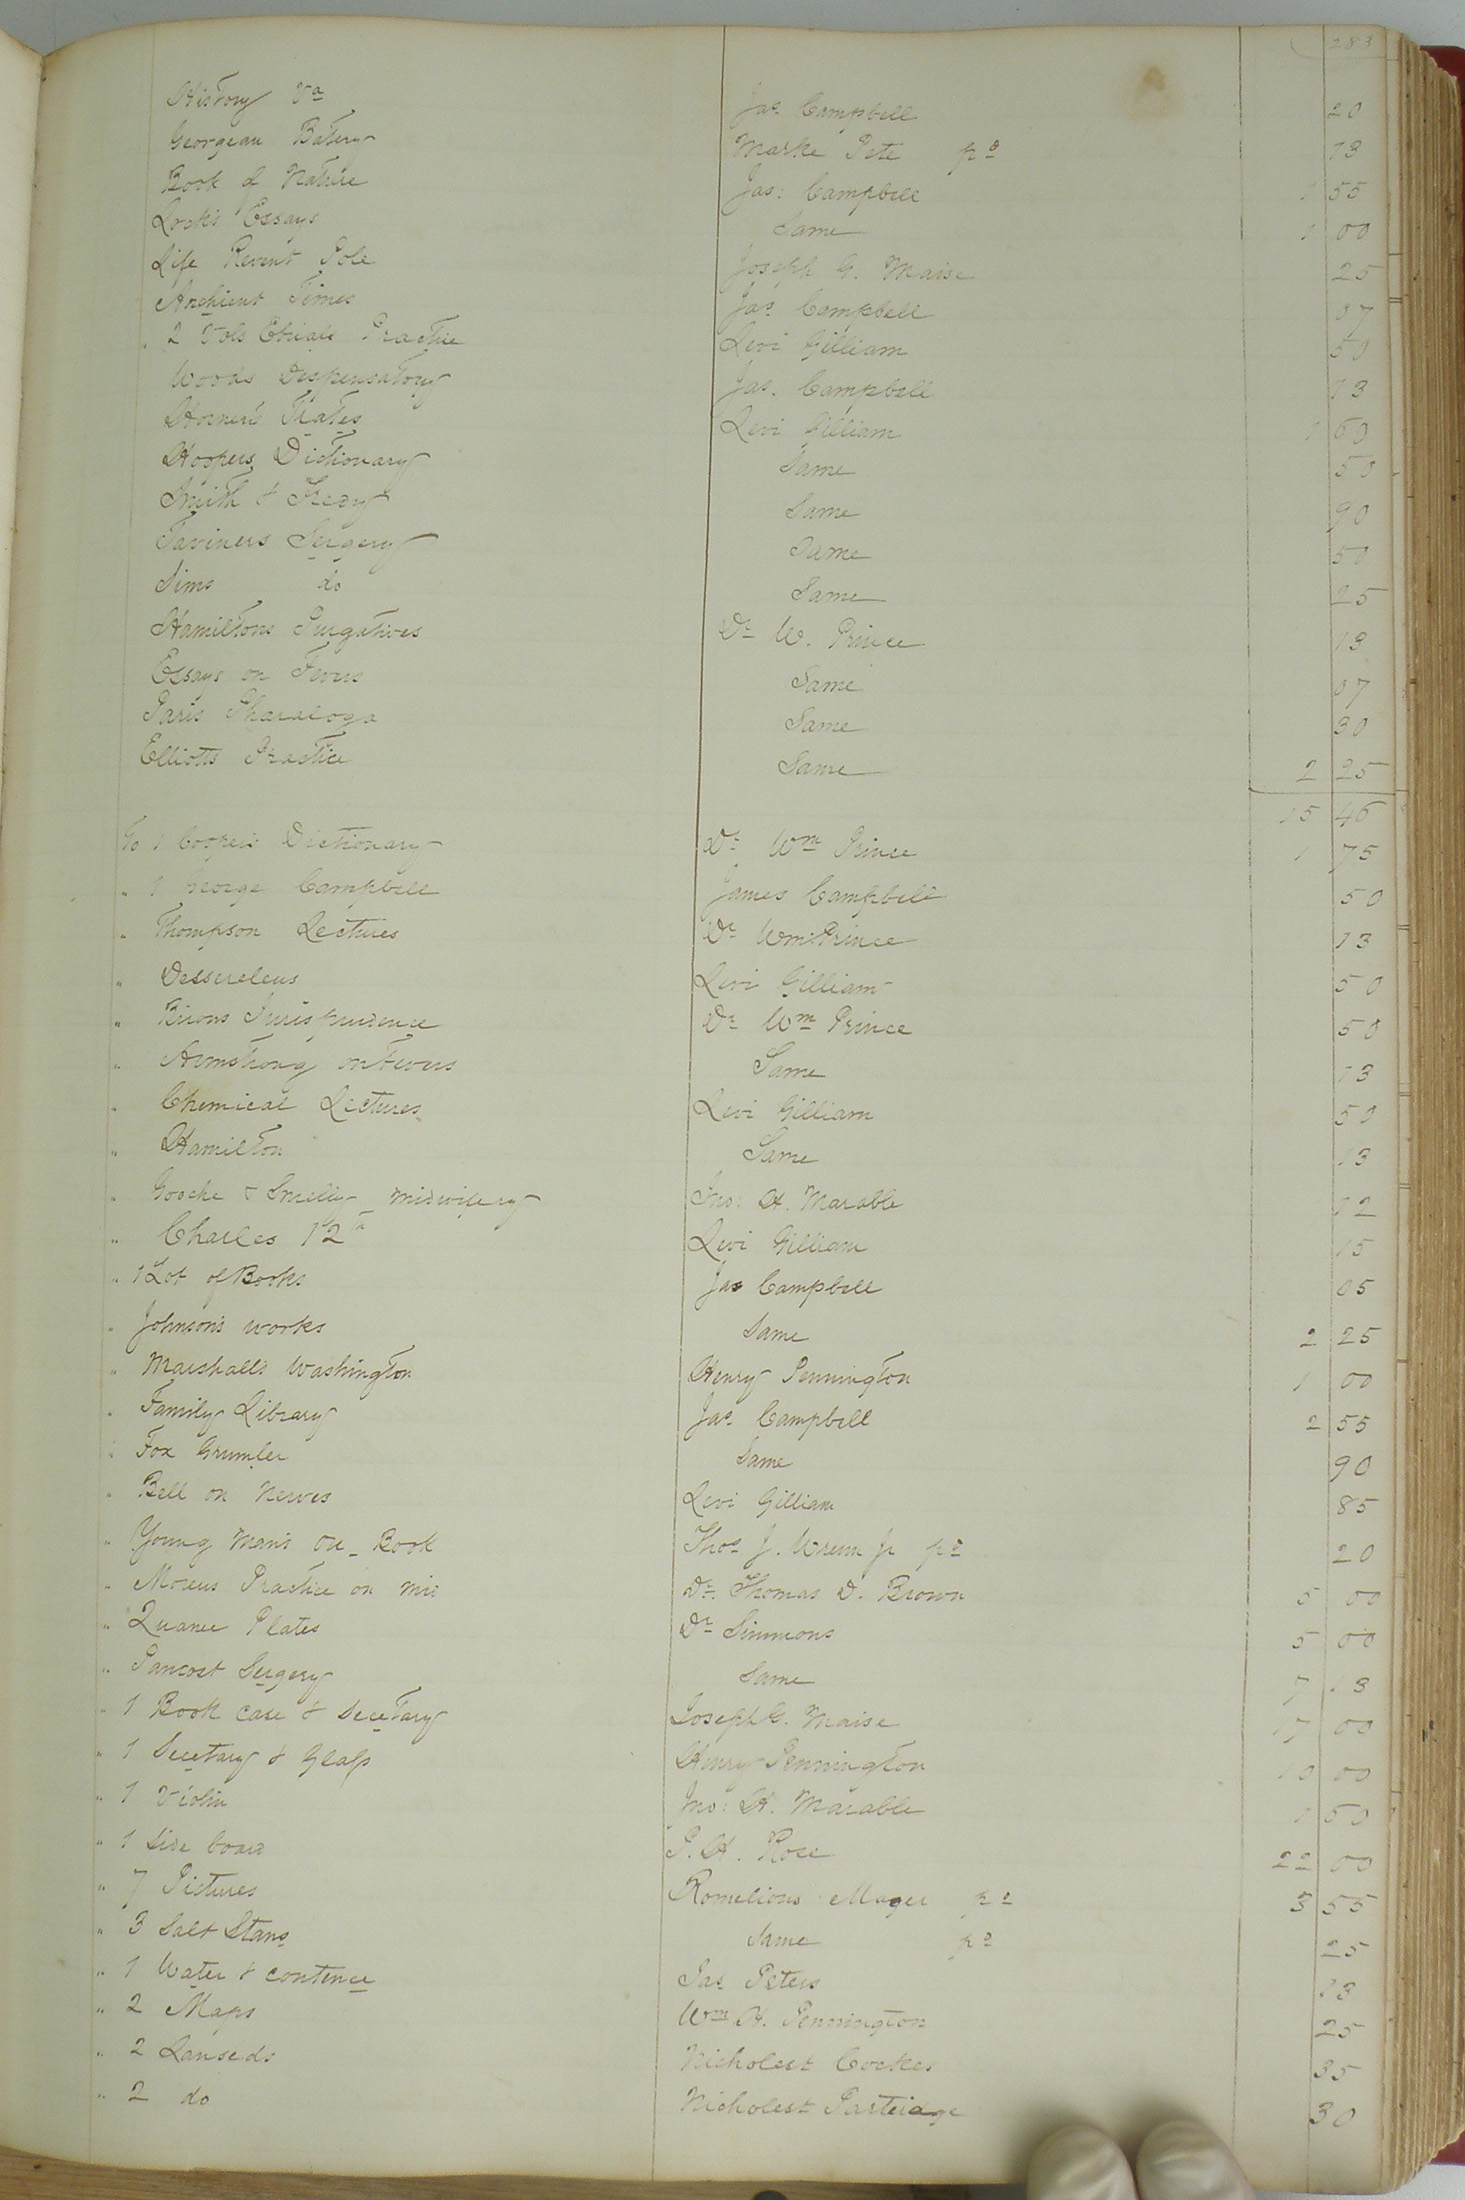 283
History Va Jas. Campbell 20
Georgean Batery Marke Pete pd 13
Book of Nature Jas: Campbell 1 55
Lock's Essays Same 1 00
Life Revent Pole Joseph G. Maise 25
Anchient Times Jas Campbell 07
" 2 Vols Eberals Practice Levi Gilliam 50
Woods Dispensatory Jas. Campbell 13
Horner's Plates Levi Gilliam 1 60
Hoopers Dictionary Same 50
Smith & Same 90
Taviners Sergery Same 50
Sims do Same 25
Hamiltons Purgatives Dr W. Prince 13
Essays on Fevers Same 07
Paris Pharaloga Same 30
Elliotts Practice Same 2 25
15 46
To 1 Cooper's Dictionary Dr Wm Prince 1 75
" 1 George Campbell James Campbell 50
" Thompson Lectures Dr Wm Prince 13
" Levi Gilliam 50
" Jurisprudence Dr Wm Prince 50
" Armstrong on Fevers Same 13
" Chemical Lectures Levi Gilliam 50
" Hamilton Same 13
" Gooche & Smelly midwifery Jno: H. Marable 12
" Charles 12th Levi Gilliam 15
" 1 Lot of Books Jas Campbell 05
" Johnson's works Same 2 25
" Marshalls Washington Henry Pennington 1 00
" Family Library Jas. Campbell 2 55
" Fox Same 90
" Bell on Nerves Levi Gilliam 85
" Young Man's Book Thos J. Wrenn Jr pd 20
" Practice on mid Dr. Thomas D. Brown 5 00
" Plates Dr Simmons 5 00
" Pancost Sergery Same 7 13
" 1 Book case & Secetary Joseph G. Maise 17 00
" 1 Secetary & Glass Henry Pennington 10 00
" 1 Violin Jno: H. Marable 1 50
" 1 Side board P. H. Rose 22 00
" 7 Pictures Mager pd 3 55
" 3 Salt Stans Same pd 25
" 1 Water & contence Jas Peters 13
" 2 Maps Wm H. Pennington 25
" 2 Lanseds Nicholest Cockes 35
" 2 do Nicholest Parteiage 30